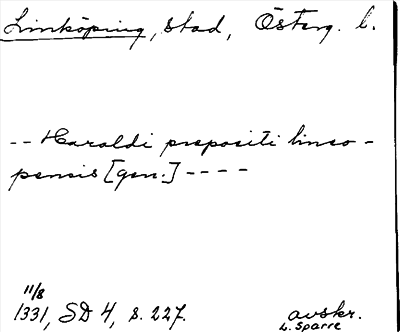 Linköping, stad, Österg. l.
-- Haraldi prepositi linco-
pensis [gen.] ----
11/8
1331, SD 4, s. 227. avskr.
L. Sparre